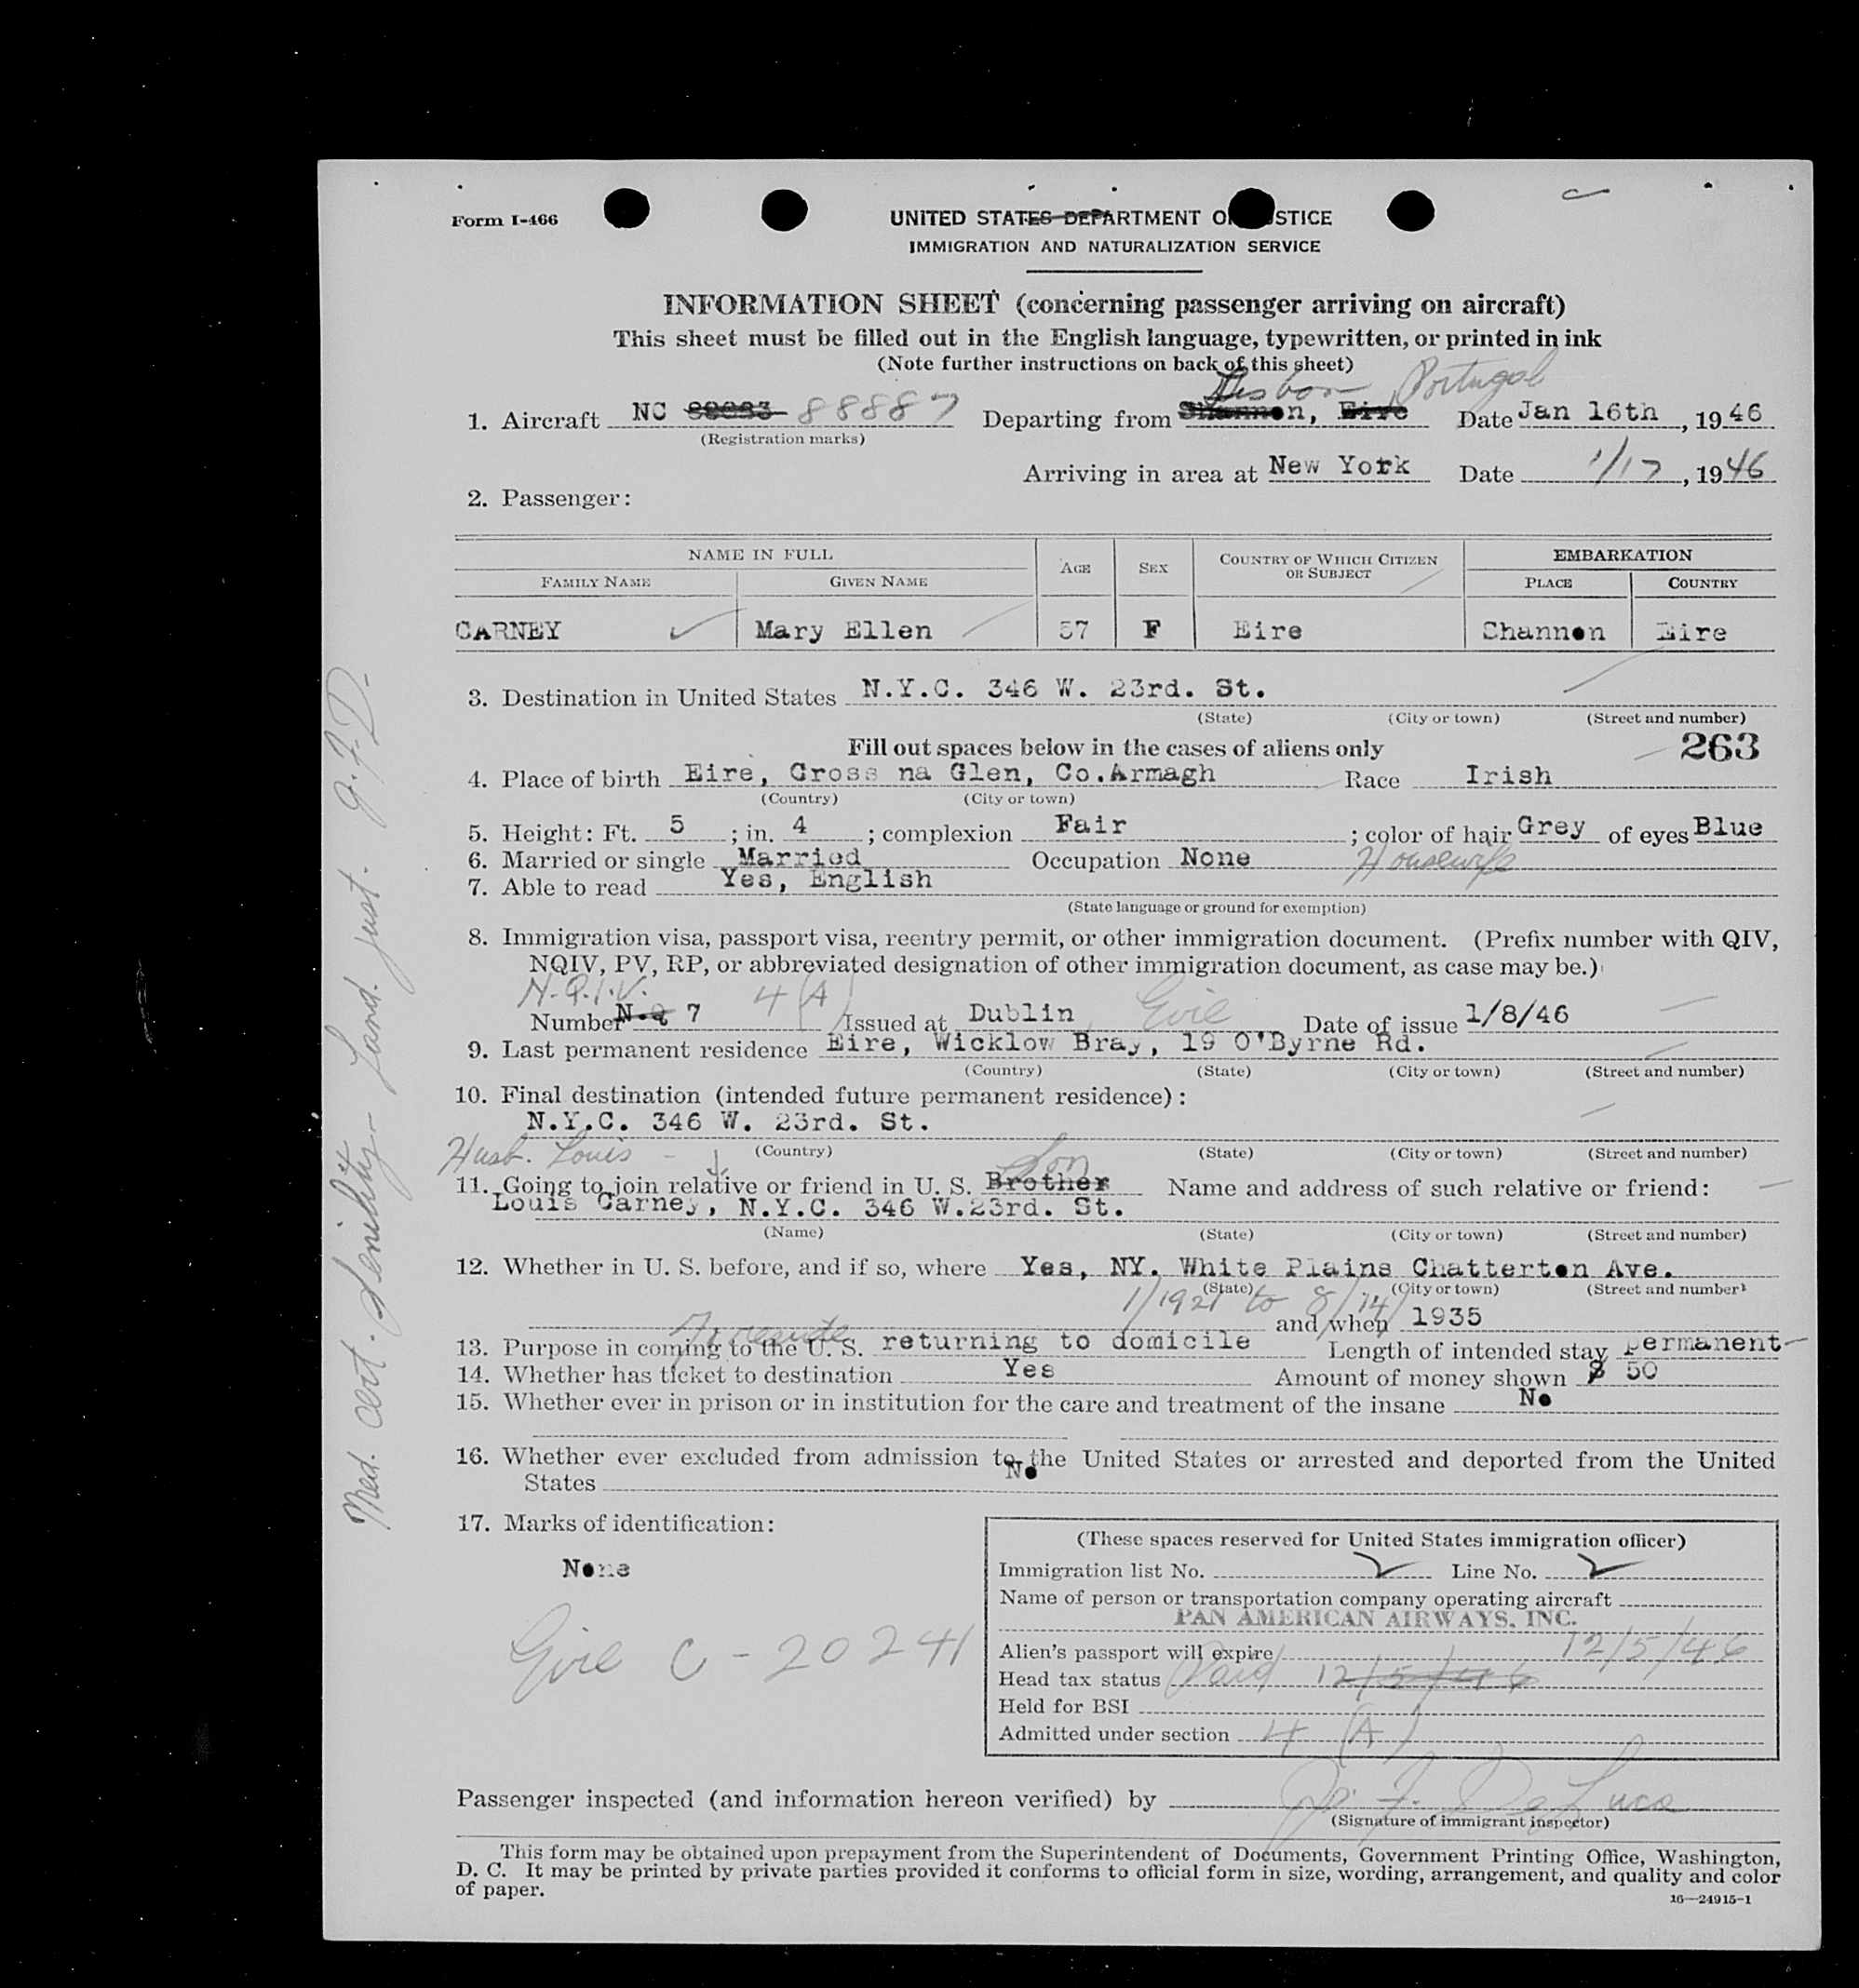 Form I-466
UNITED STATES DEPARTMENT OF JUSTICE
IMMIGRATION AND NATURALIZATION SERVICE
INFORMATION SHEET (concerning passenger arriving on aircraft)
This sheet must be filled out in the English language, typewritten, or printed in ink
(Note further instructions on back of this sheet)
Lisbon, Portugal
1. Aircraft NC 88887 Departing from Shannon, Eire Date Jan 16th, 1946
(Registration marks)
Arriving in area at New York Date 1/17, 1946
2. Passenger:
NAME IN FULL AGE SEX COUNTRY OF WHICH CITIZEN OR SUBJECT EMBARKATION
FAMILY NAME GIVEN NAME PLACE COUNTRY
CARNEY Mary Ellen 57 F Eire Shannon Eire
3. Destination in United States N.Y.C. 346 W. 23rd. St.
(State) (City or town) (Street and number)
Fill out spaces below in the cases of aliens only 263
4. Place of birth Eire, Cross na Glen, Co.Armagh Race Irish
(Country) (City or town)
5. Height: Ft. 5; in. 4; complexion Fair; color of hair Grey of eyes Blue
6. Married or single Married Occupation None Housewife
7. Able to read Yes, English
(State language or ground for exemption)
8. Immigration visa, passport visa, reentry permit, or other immigration document. (Prefix number with QIV,
NQIV, PV, RP, or abbreviated designation of other immigration document, as case may be.)
N.Q.I.V. 4 (A)
Number N.Q 7 Issued at Dublin Eire Date of issue 1/8/46
9. Last permanent residence Eire, Wicklow Bray, 19 O'Byrne Rd.
(Country) (State) (City or town) (Street and number)
10. Final destination (intended future permanent residence):
N.Y.C. 346 W. 23rd. St.
(Country) (State) (City or town) (Street and number)
Husb. Louis - Son
11. Going to join relative or friend in U. S. Brother Name and address of such relative or friend:
Louis Carney, N.Y.C. 346 W.23rd. St.
(Name) (State) (City or town) (Street and number)
12. Whether in U. S. before, and if so, where Yes, NY. White Plains Chatterton Ave.
(State) (City or town) (Street and number)
1/1921 to 8/14/ and when 1935
To reside
13. Purpose in coming to the U. S. returning to domicile Length of intended stay permanent
14. Whether has ticket to destination Yes Amount of money shown $ 50
15. Whether ever in prison or in institution for the care and treatment of the insane No
16. Whether ever excluded from admission to the United States or arrested and deported from the United
States No
17. Marks of identification:
None
Eire C-20241
(These spaces reserved for United States immigration officer)
Immigration list No. 2 Line No. 2
Name of person or transportation company operating aircraft
PAN AMERICAN AIRWAYS, INC.
Alien's passport will expire 12/5/46
Head tax status Paid 12/5/46
Held for BSI
Admitted under section 4 (A)
Passenger inspected (and information hereon verified) by F. DeLuca
(Signature of immigrant inspector)
This form may be obtained upon prepayment from the Superintendent of Documents, Government Printing Office, Washington,
D. C. It may be printed by private parties provided it conforms to official form in size, wording, arrangement, and quality and color
of paper.
16—24915-1
Med. cert. Senility - Land. just. J.F.D.